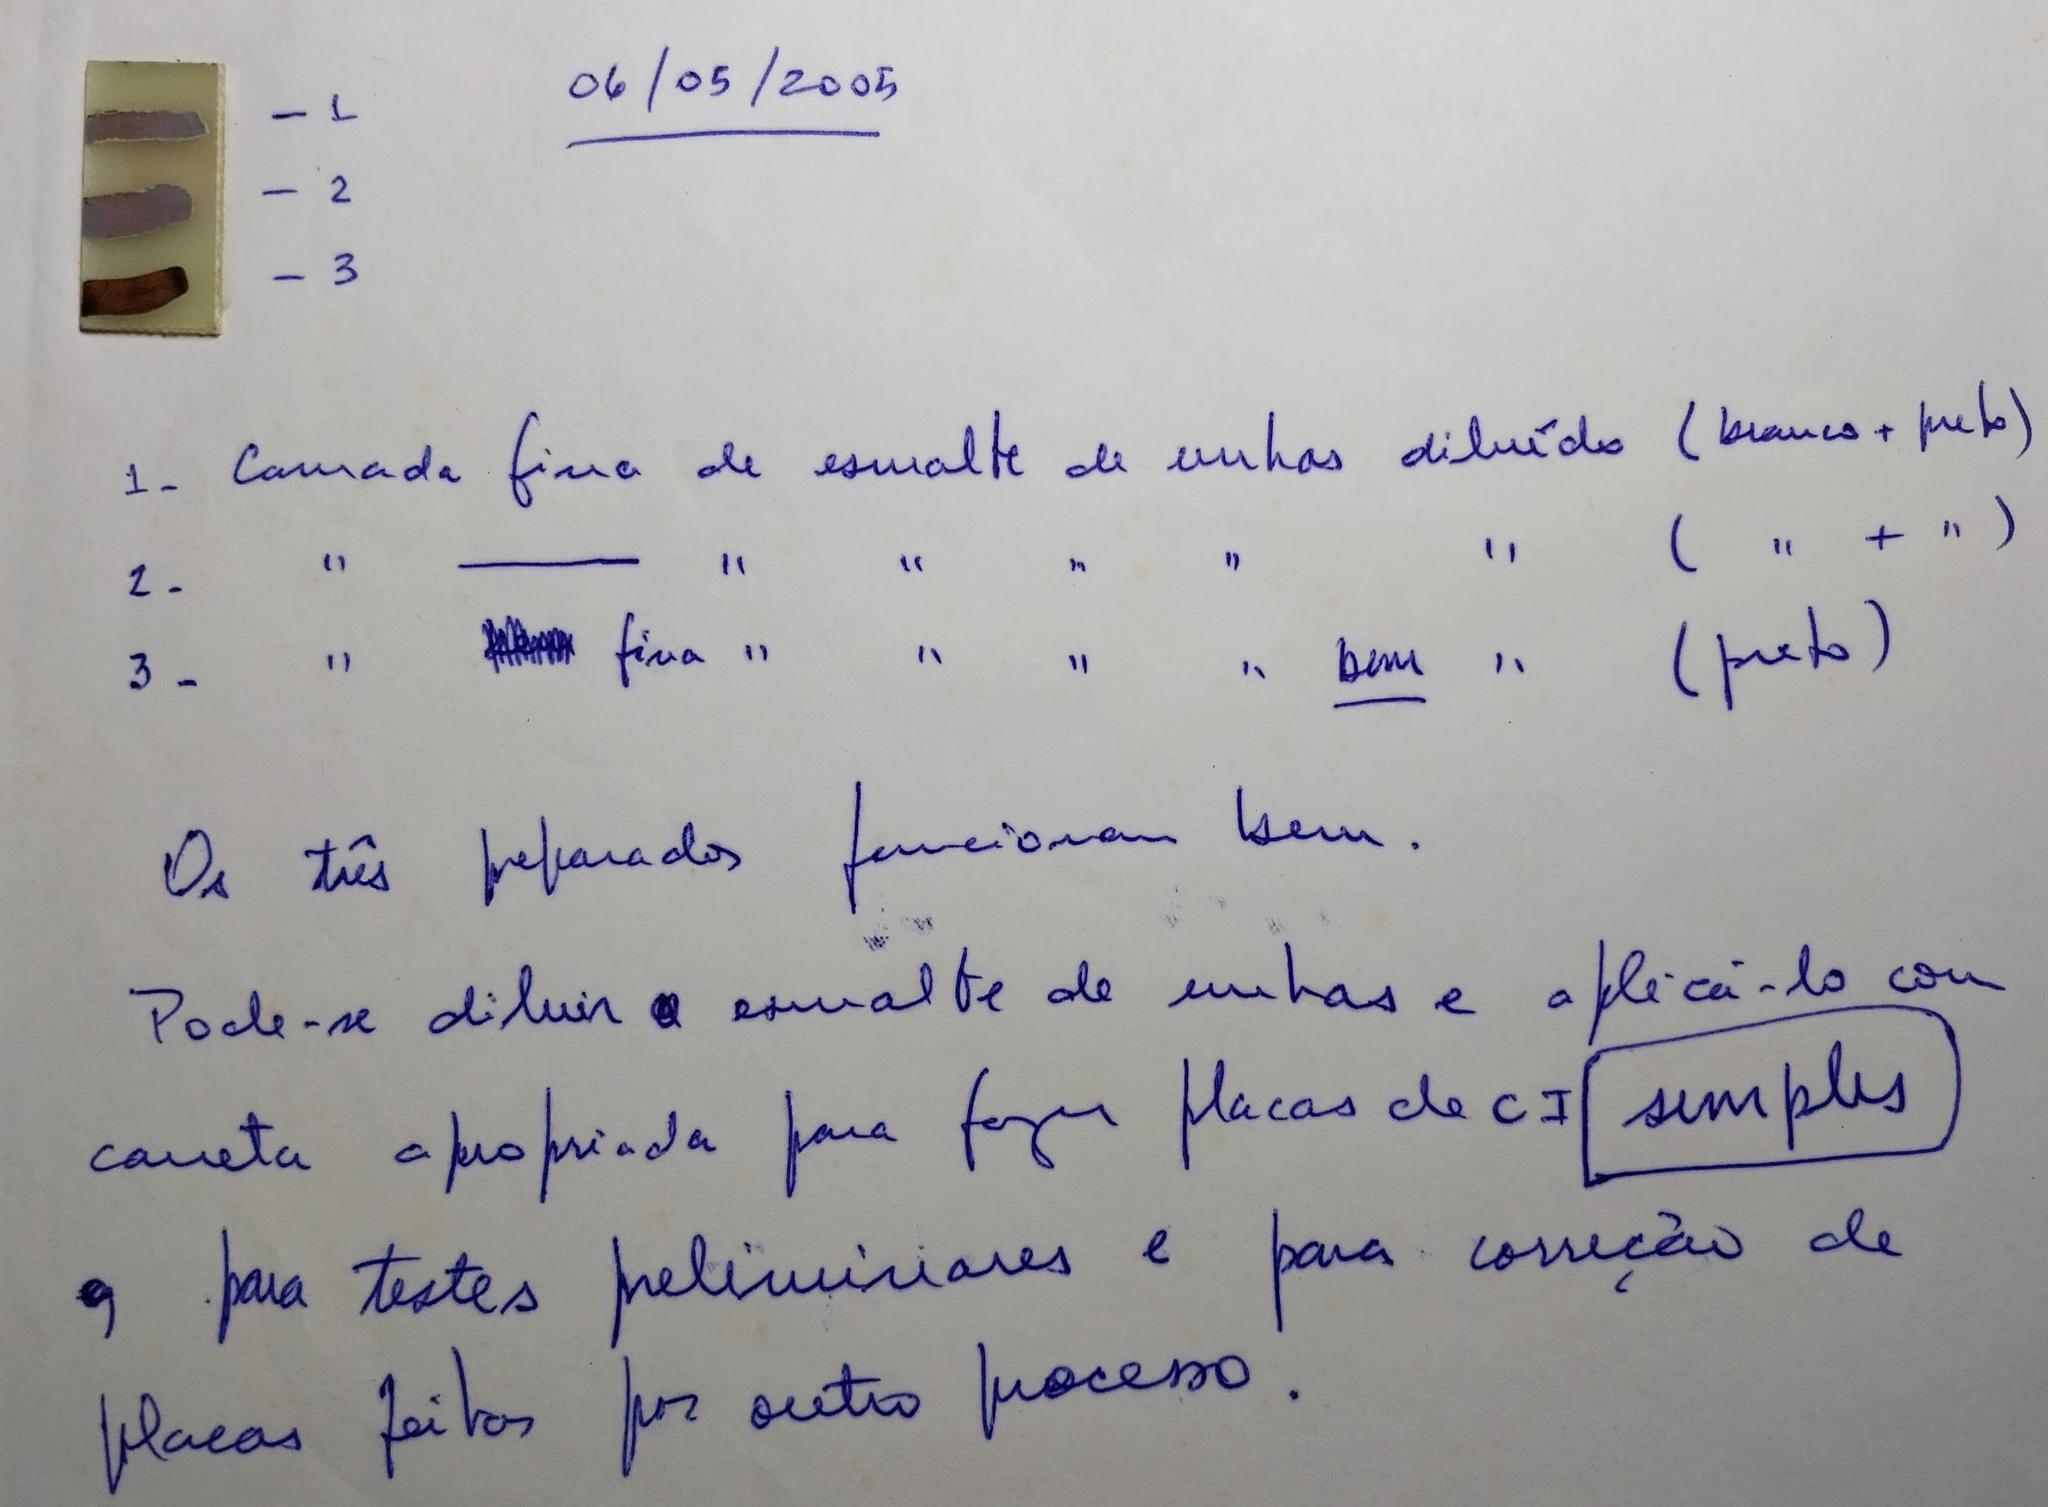 - 1
06/05/2005
- 2
- 3
1- Camada fina de esmalte de unhas diluído (branco + preto)
2- " —— " " " " " ( " + " )
3- " fina " " " " bem " (preto)
Os três preparados funcionam bem.
Pode-se diluir o esmalte de unhas e aplicá-lo com
caneta apropriada para fazer placas de CI simples
e para testes preliminares e para correção de
placas feitas por outro processo.